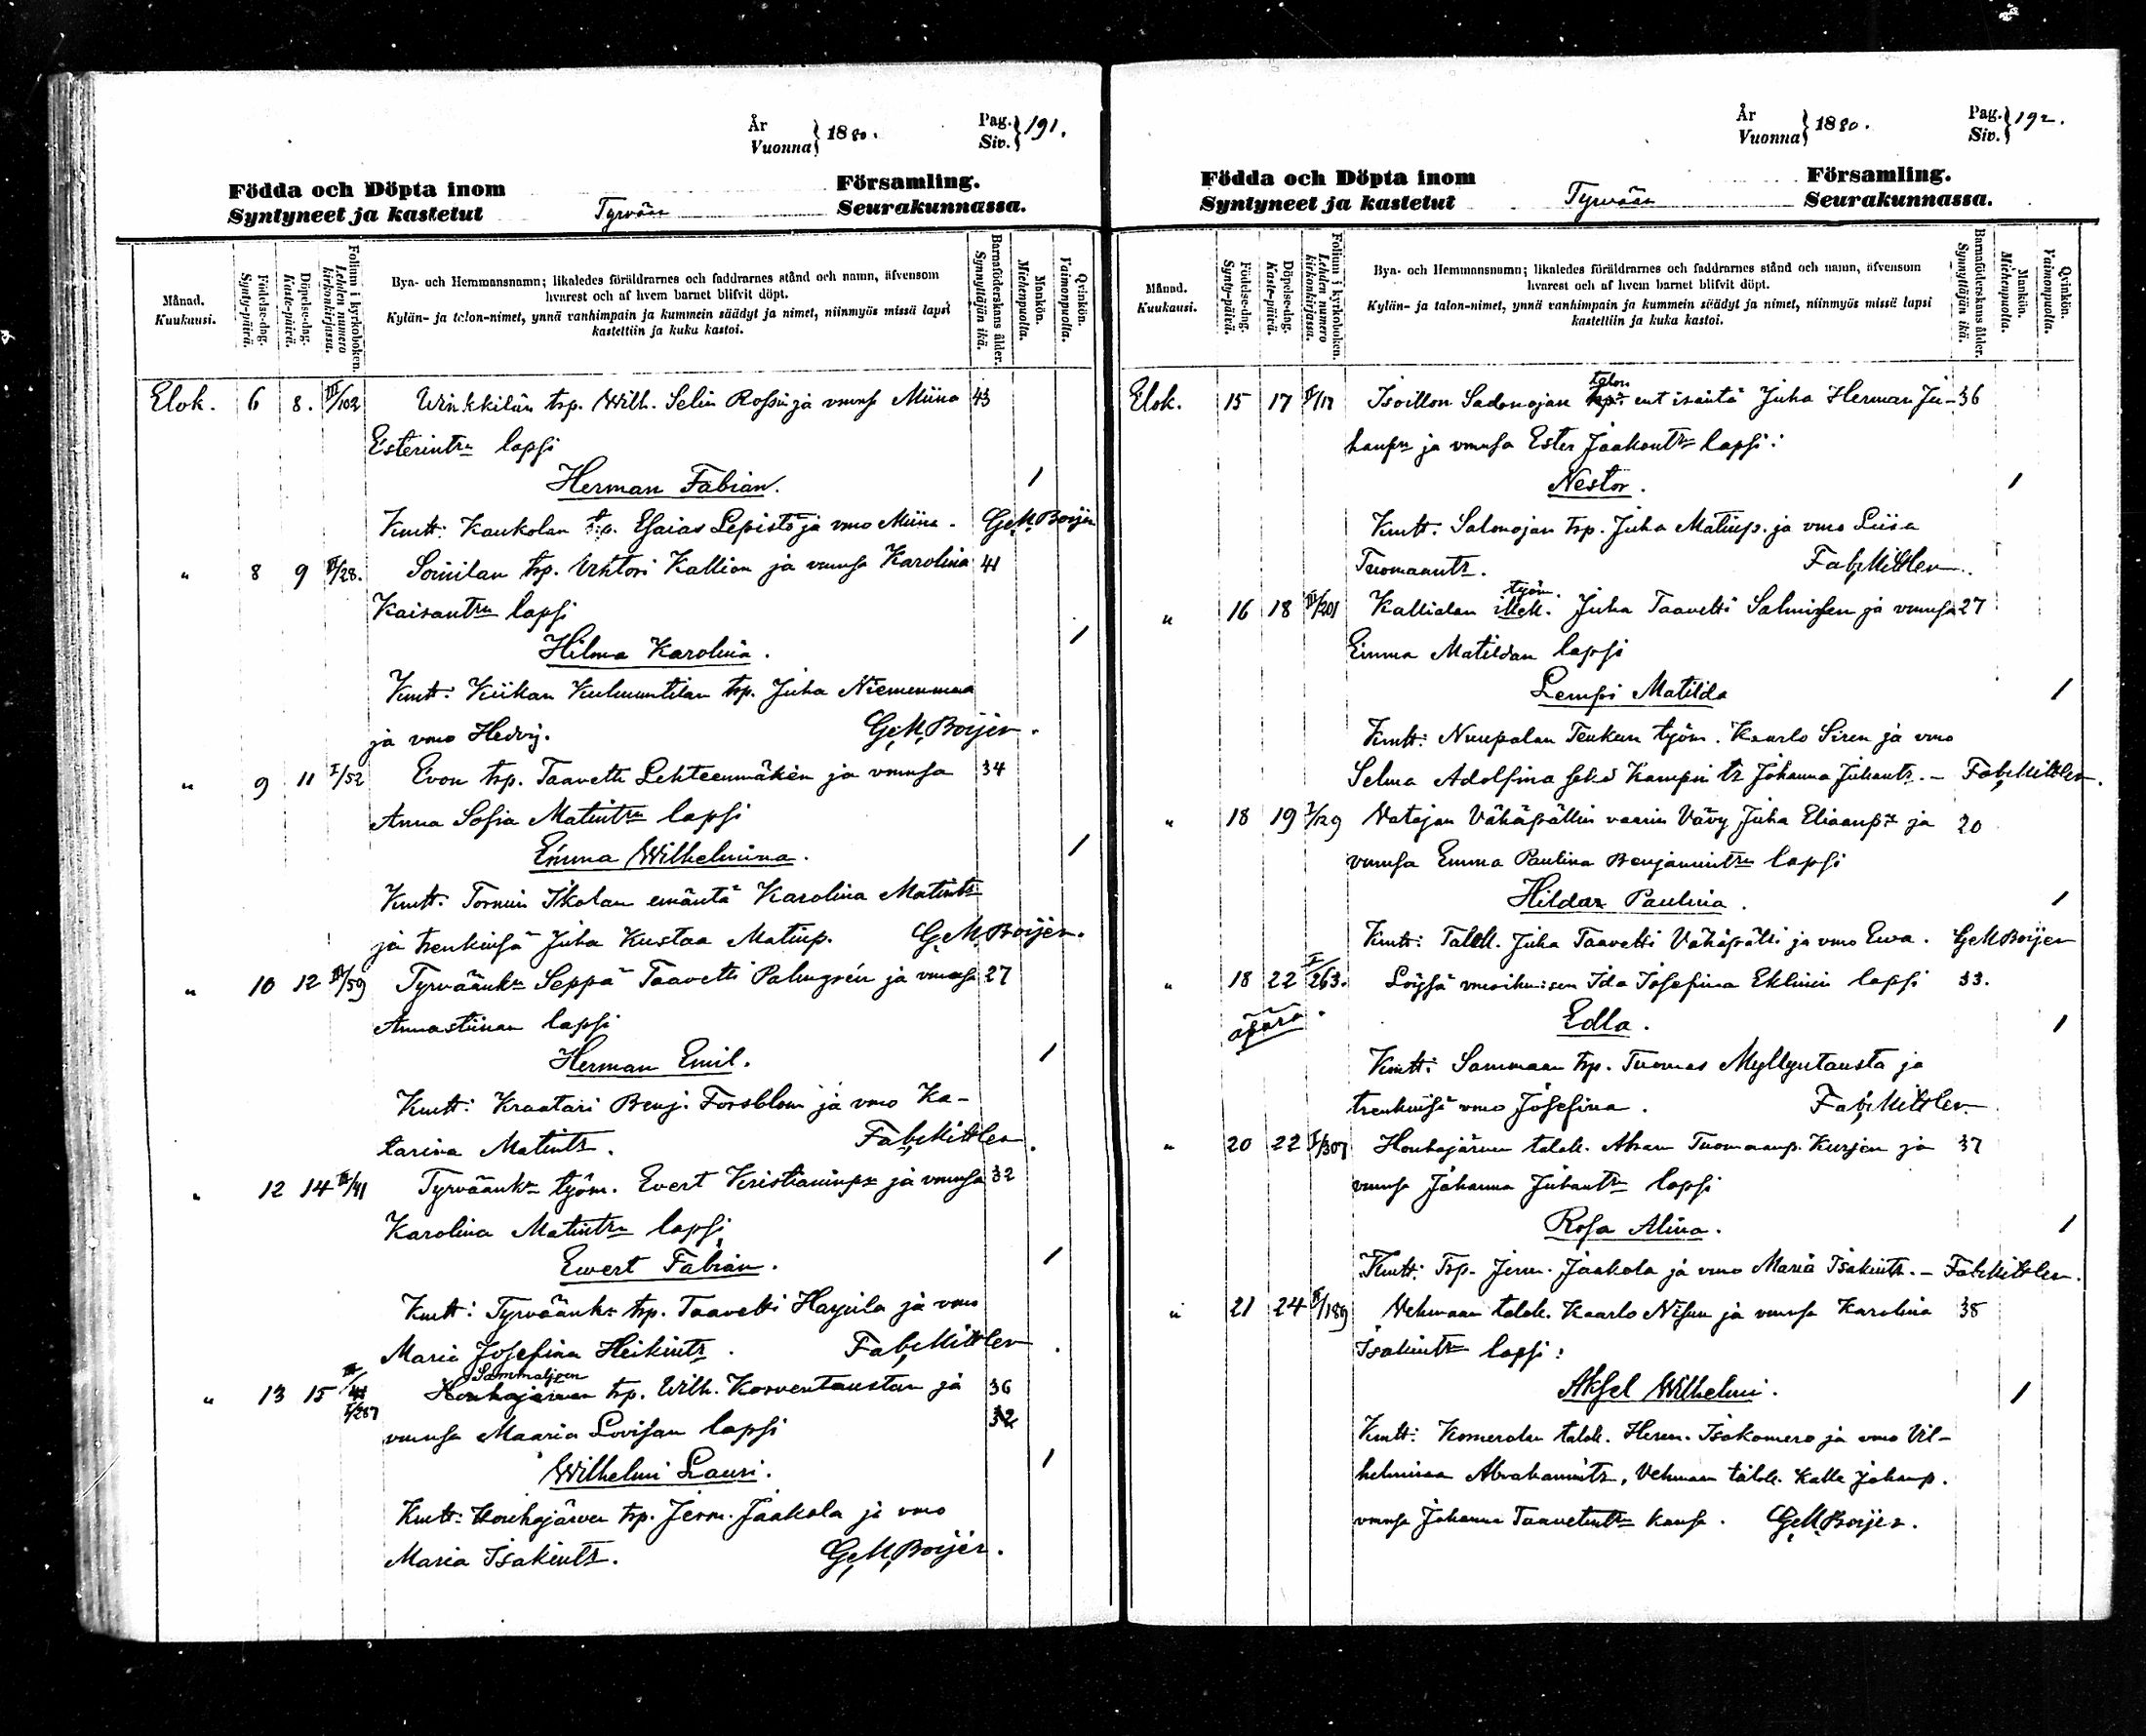 År
Vuonna } 1880.
Pag.
Siv. } 191.
Födda och Döpta inom Församling.
Syntyneet ja kastetut Tyrvään Seurakunnassa.
Månad.
Kuukausi.
Födelse-dag.
Synty-päivä.
Döpelse-dag.
Kaste-päivä.
Folium i kyrkoboken.
Lehden numero kirkonkirjassa.
Bya- och Hemmansnamn; likaledes föräldrarnes och faddrarnes stånd och namn, äfvensom
hvarest och af hvem barnet blifvit döpt.
Kylän- ja talon-nimet, ynnä vanhimpain ja kummein säädyt ja nimet, niinmyös missä lapsi
kastettiin ja kuka kastoi.
Barnaföderskans ålder.
Synnyttäjän ikä.
Mankön.
Miehenpuolta.
Qvinkön.
Vaimonpuolta.
Elok. 6 8. III/102 Winkkilän tsp. Wilh. Selin Rossin ja vmnsa Miina 43
Esterintrn lapsi
Herman Fabian. 1
Kmtt: Kaukolan tsp. Esaias Lepistö ja vmo Miina. G.M.Boijer
" 8 9 /28. Soinilan tsp. Vihtori Kallion ja vmnsa Karolina 41
Kaisantrn lapsi
Hilma Karolina. 1
Kmtt: Kiikan tsp. Juha Niemenmaa
ja vmo Hedvig. G.M.Boijer.
" 9 11 I/52 Evon tsp. Taavetti Lehteenmäken ja vmnsa 34
Anna Sofia Matintrn lapsi
Emma Wilhelmina. 1
Kmtt: Tornin Ikolan emäntä Karolina Matintr
ja trenkinsä Juha Kustaa Matinp. G.M.Boijer.
" 10 12 III/59 Tyrväänk. Seppä Taavetti Palmgrén ja vmnsa 27
Annastiinan lapsi
Herman Emil. 1
Kmtt: Kraatari Benj. Forsblom ja vmo Ka-
tarina Matintr. Fab.Mittler.
" 12 14 III/41 Tyrväänk. työm. Evert Kristianinpn ja vmnsa 32
Karolina Matintrn lapsi
Ewert Fabian. 1
Kmtt: Tyrväänk. tsp. Taavetti Harjula ja vmo
Maria Josefina Heikintr. Fab.Mittler.
Sammaljoen
" 13 15 I/287 Houhajärven tsp. Wilh. Korventaustan ja 36
vmnsa Maaria Lovisan lapsi 32
Wilhelmi Lauri. 1
Kmtt: Houhajärven tsp. Jerm. Jaakola ja vmo
Maria Isakintr. G.M.Boijer.
År
Vuonna } 1880.
Pag.
Siv. } 192.
Födda och Döpta inom Församling.
Syntyneet ja kastetut Tyrvään Seurakunnassa.
Månad.
Kuukausi.
Födelse-dag.
Synty-päivä.
Döpelse-dag.
Kaste-päivä.
Folium i kyrkoboken.
Lehden numero kirkonkirjassa.
Bya- och Hemmansnamn; likaledes föräldrarnes och faddrarnes stånd och namn, äfvensom
hvarest och af hvem barnet blifvit döpt.
Kylän- ja talon-nimet, ynnä vanhimpain ja kummein säädyt ja nimet, niinmyös missä lapsi
kastettiin ja kuka kastoi.
Barnaföderskans ålder.
Synnyttäjän ikä.
Mankön.
Miehenpuolta.
Qvinkön.
Vaimonpuolta.
talon
Elok. 15 17 /17 Isoillon Sadonojan ent isäntä Juha Herman Ju- 36
hanpn ja vmnsa Ester Jaakontrn lapsi:
Nestor. 1
Kmtt. Salonojan tsp. Juha Matinp. ja vmo Liisa
Tuomaantr. Fab.Mittler.
työm.
" 16 18 III/201 Kallialan itsell. Juha Taavetti Salmisen ja vmnsa 27
Emma Matildan lapsi
Lempi Matilda 1
Kmtt: Nuupalan Tenkun työm. Kaarlo Siren ja vmo
Selma Adolfina sekä Kampin tr Johanna Juhantr. - Fab.Mittler.
" 18 19 I/129 Vatajan Vähäpällin vaarin Vävy Juha Eliaanpn ja 20
vmnsa Emma Paulina Benjamintrn lapsi
Hilda Paulina. 1
Kmtt: Talll. Juha Taavetti Vähäpälli ja vmo Ewa. G.M.Boijer
" 18 22 I/263. Löysä vmoihmisen Ida Josefina Eklinin lapsi 33.
äpärä.
Edla. 1
Kmtt: Sammaan tsp. Tuomas Myllyntausta ja
trenkinsä vmo Josefina. Fab.Mittler.
" 20 22 I/307 Houhajärven taloll. Abram Tuomaanp. Kurjen ja 37
vmnsa Johanna Juhantrn lapsi
Rosa Alina. 1
Kmtt: Tsp. Jerm. Jaakola ja vmo Maria Isakintr. - Fab.Mittler.
" 21 24 II/189 Vehmaan taloll. Kaarlo Nisun ja vmnsa Karolina 38
Isakintrn lapsi:
Aksel Wilhelmi. 1
Kmtt: Komeron taloll. Herm. Isokomero ja vmo Vil-
helmina Abrahamintr, Vehmaan taloll. Kalle Johanp.
vmnsa Johanna Taavetintrn kansa. G.M.Boijer.